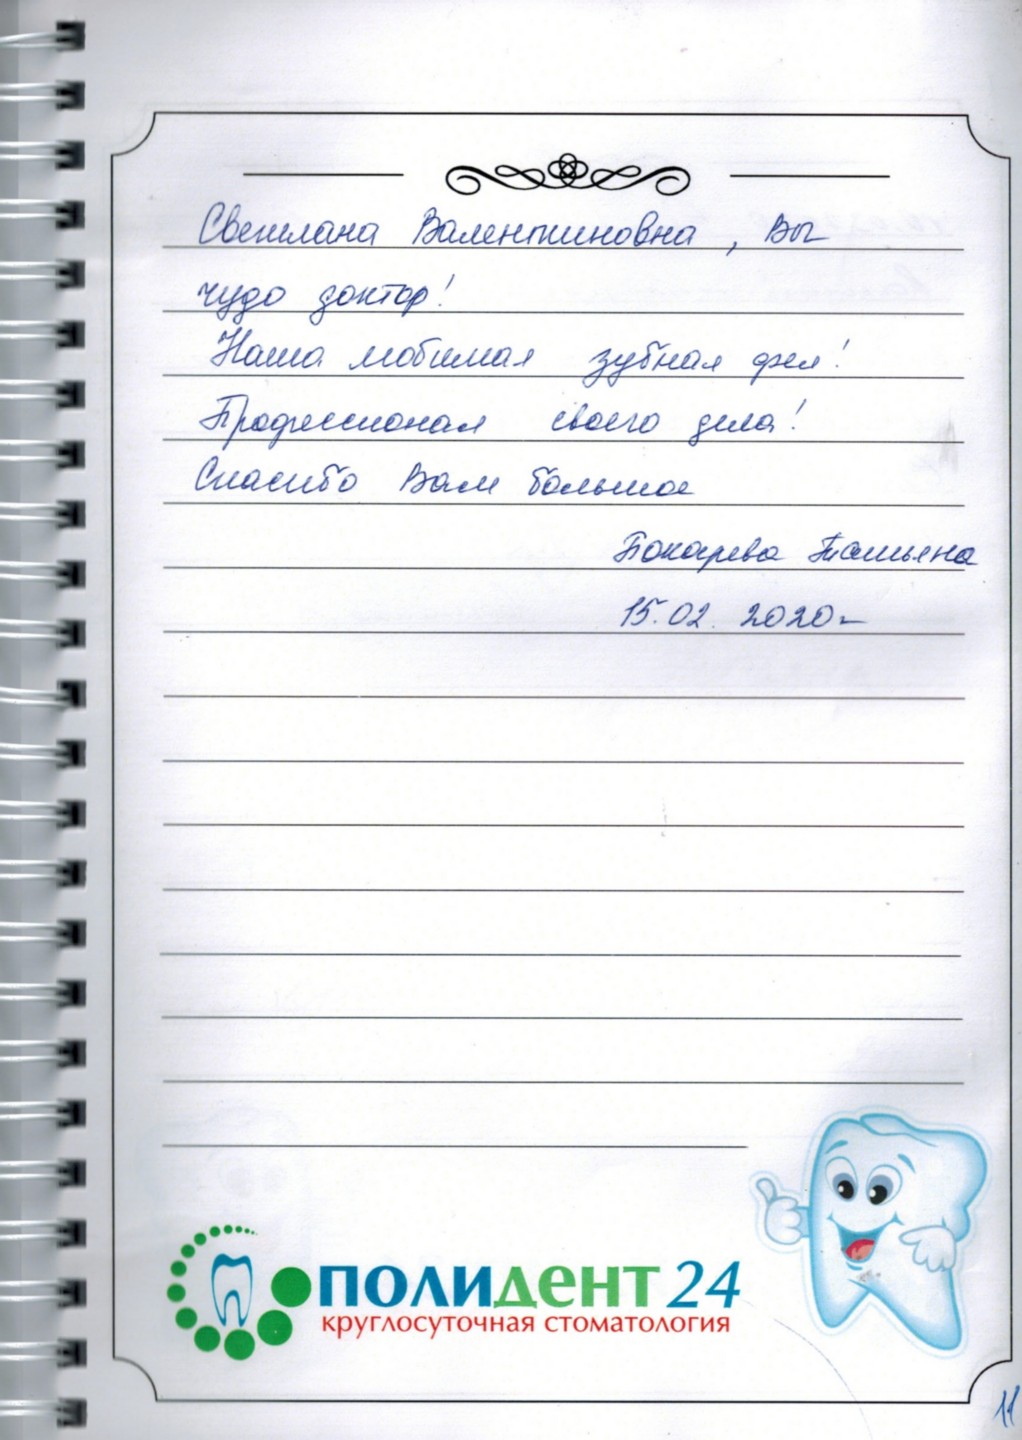 Светлана Валентиновна, Вы
чудо доктор!
Наша любимая зубная фея!
Профессионал своего дела!
Спасибо Вам большое
Токарева Татьяна
15.02.2020г
ПОЛИДЕНТ 24
круглосуточная стоматология
11